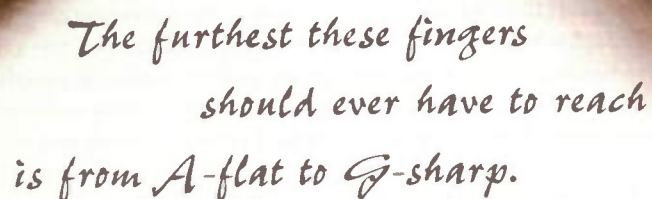 The furthest these fingers
should ever have to reach
is from A-flat to G-sharp.